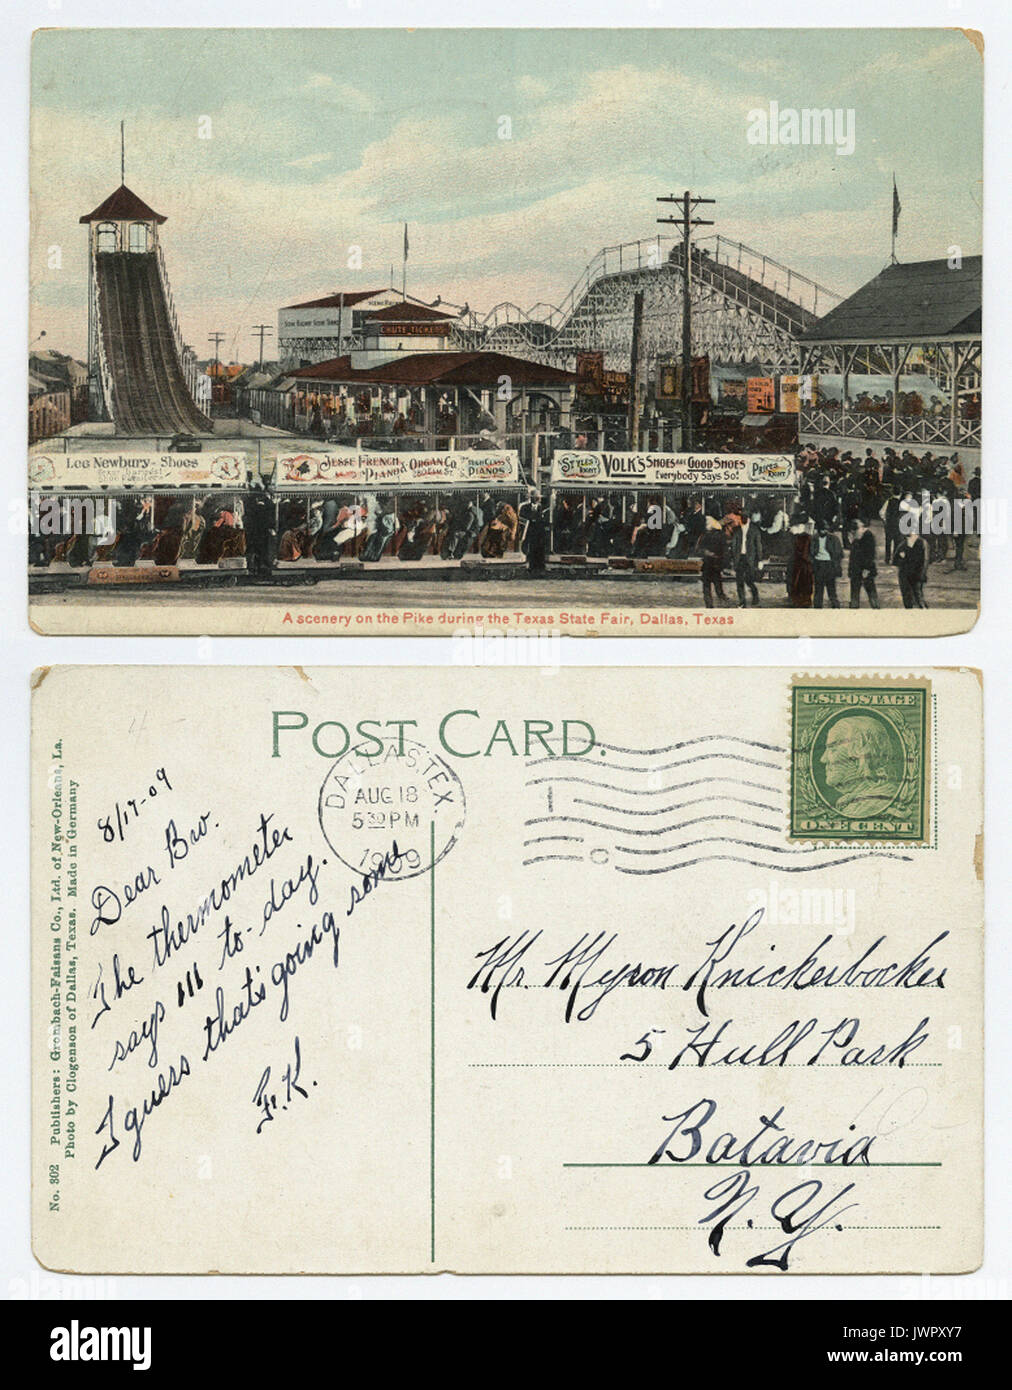 SCENIC
CHUTE TICKETS
Lee Newbury-Shoes
JESSE FRENCH PIANO & ORGAN CO.
HIGH CLASS PIANOS
STYLES RIGHT
VOLK'S SHOES ARE GOOD SHOES
Everybody Says So!
PRICES RIGHT
A scenery on the Pike during the Texas State Fair, Dallas, Texas
POST CARD.
U.S. POSTAGE
ONE CENT
DALLAS, TEX.
AUG 18
5 30 PM
1909
8/17-09
Dear Bro.
The thermometer
says 111 to-day.
I guess that's going some
F. K.
Mr. Myron Knickerbocker
5 Hull Park
Batavia
N. Y.
No. 302 Publishers: Grombach-Faisans Co., Ltd. of New-Orleans, La.
Photo by Clogenson of Dallas, Texas. Made in Germany
alamy
Image ID: JWPXY7
www.alamy.com